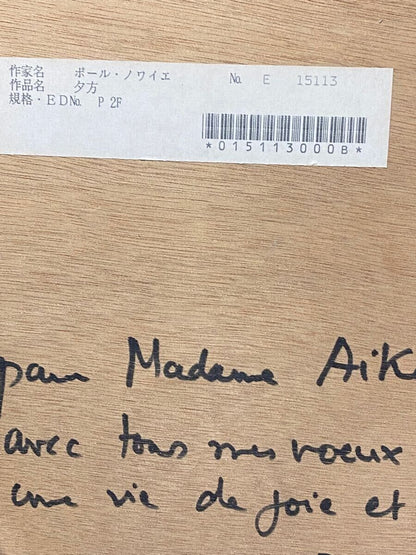 作家名　ポール・ノワイエ　No. E 15113
作品名　夕方
規格・EDNo.　P 2F
*0151130008*
pour Madame Aik
avec tous mes voeux
une vie de joie et